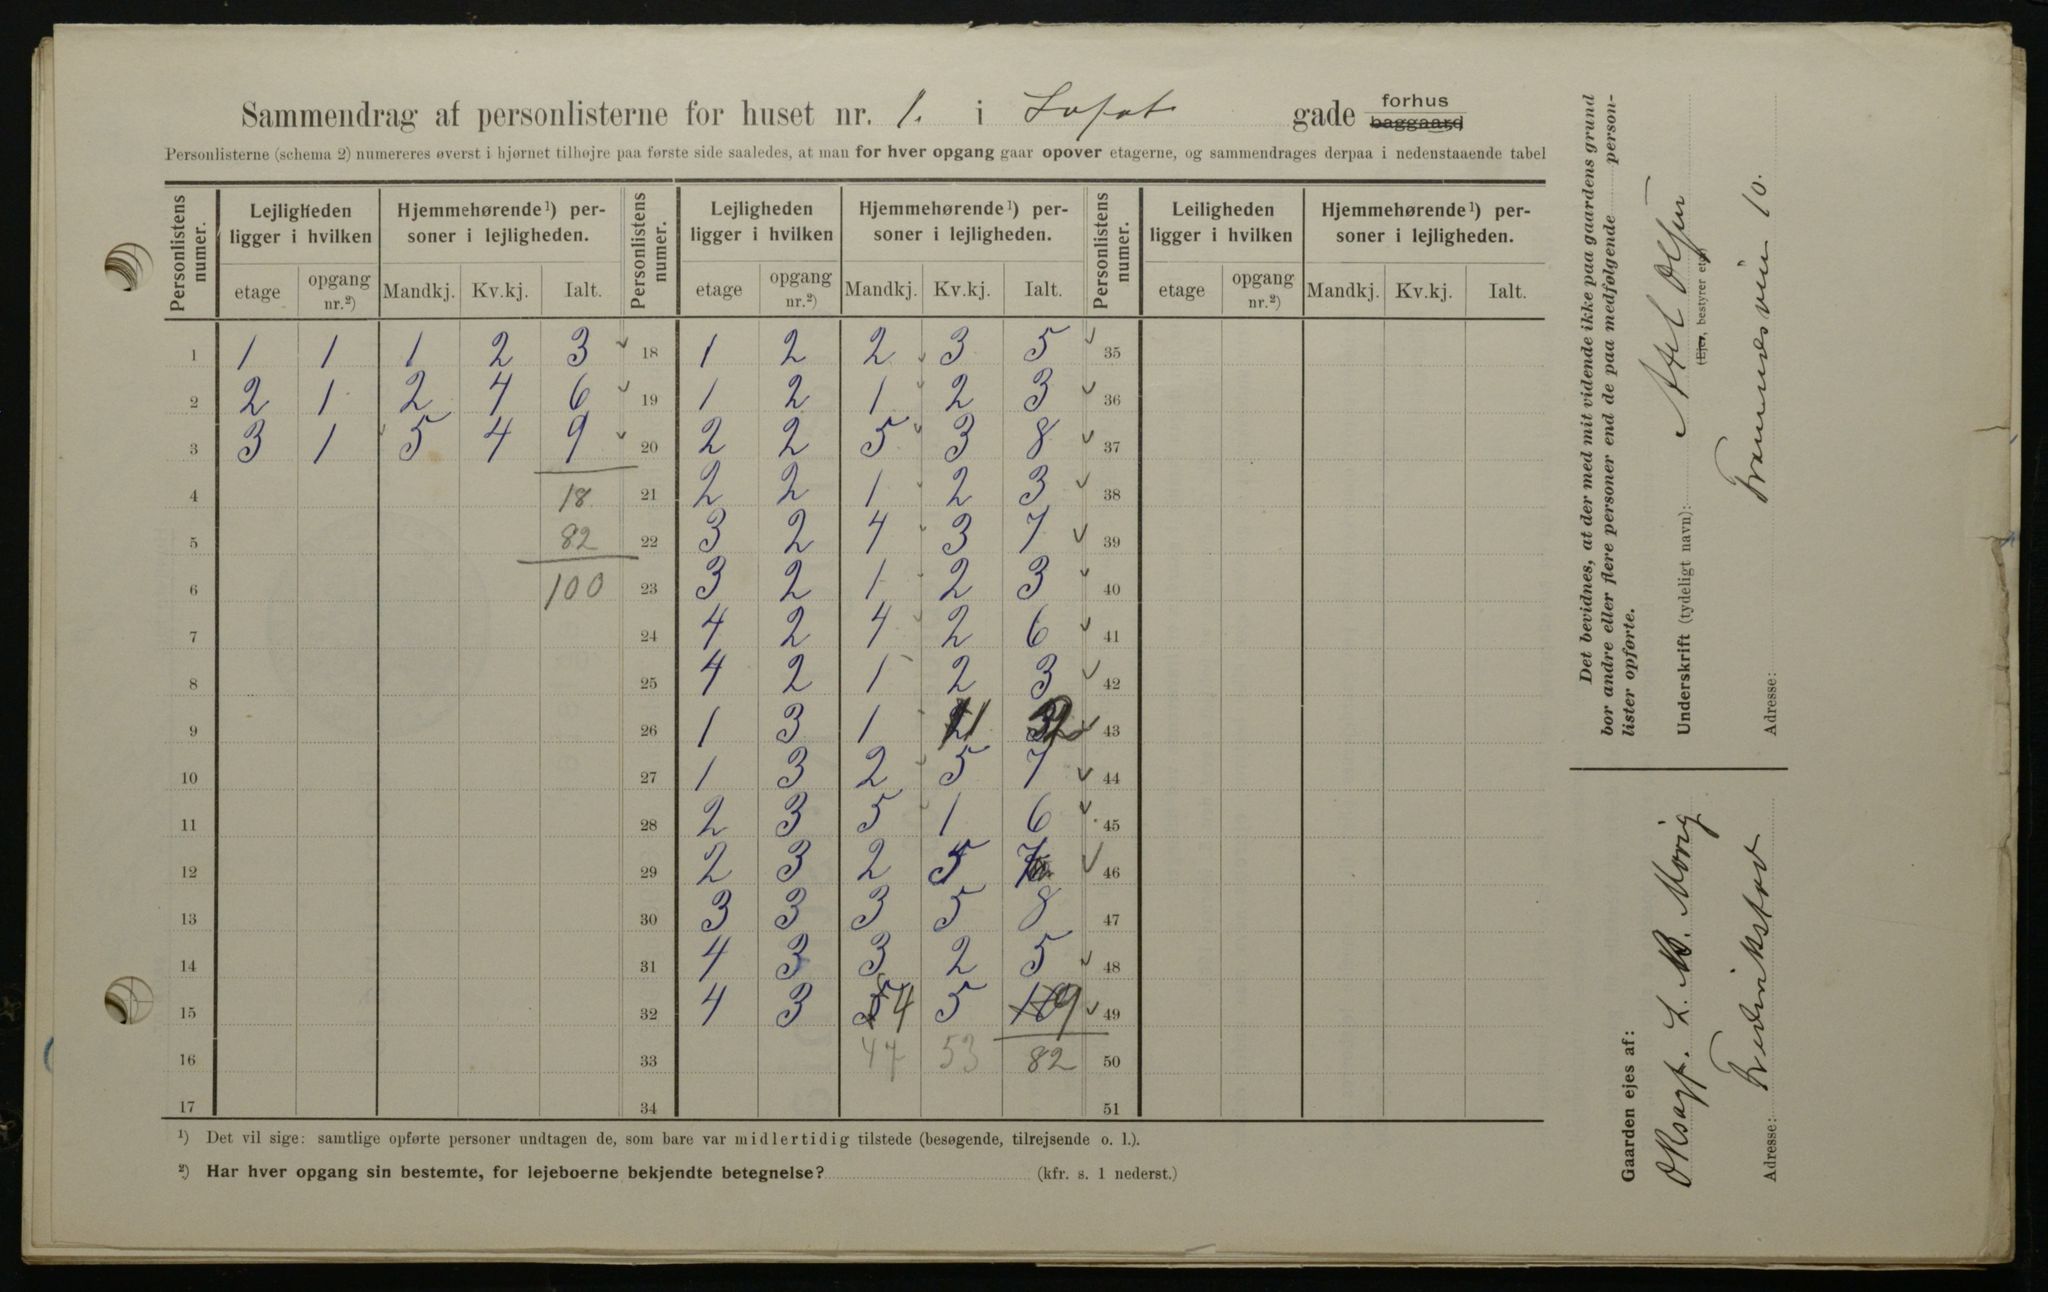 Sammendrag af personlisterne for huset nr. 1. i Lofot gade forhus baggaard
Personlisterne (schema 2) numereres øverst i hjørnet tilhøjre paa første side saaledes, at man for hver opgang gaar opover etagerne, og sammendrages derpaa i nedenstaaende tabel
Personlistens numer. Lejligheden ligger i hvilken Hjemmehørende¹) personer i lejligheden. Personlistens numer. Lejligheden ligger i hvilken Hjemmehørende¹) personer i lejligheden. Personlistens numer. Leiligheden ligger i hvilken Hjemmehørende¹) personer i lejligheden.
etage opgang nr.²) Mandkj. Kv.kj. Ialt. etage opgang nr.²) Mandkj. Kv.kj. Ialt. etage opgang nr.²) Mandkj. Kv.kj. Ialt.
1 1 1 1 2 3 18 1 2 2 3 5 35
2 2 1 2 4 6 19 1 2 1 2 3 36
3 3 1 5 4 9 20 2 2 5 3 8 37
4 18. 21 2 2 1 2 3 38
5 82 22 3 2 4 3 7 39
6 100 23 3 2 1 2 3 40
7 24 4 2 4 2 6 41
8 25 4 2 1 2 3 42
9 26 1 3 1 1 2 43
10 27 1 3 2 5 7 44
11 28 2 3 5 1 6 45
12 29 2 3 2 5 7 46
13 30 3 3 3 5 8 47
14 31 4 3 3 2 5 48
15 32 4 3 5 4 5 10 9 49
16 33 47 53 82 50
17 34 51
¹) Det vil sige: samtlige opførte personer undtagen de, som bare var midlertidig tilstede (besøgende, tilrejsende o. l.).
²) Har hver opgang sin bestemte, for lejeboerne bekjendte betegnelse? (kfr. s. 1 nederst.)
Det bevidnes, at der med mit vidende ikke paa gaardens grund
bor andre eller flere personer end de paa medfølgende person-
lister opførte.
Underskrift (tydeligt navn): Axel Olsen
(Ejer, bestyrer etc.)
Adresse: Framnesvien 10.
Gaarden ejes af:
L. M. Movig
Adresse: Fredrikstad